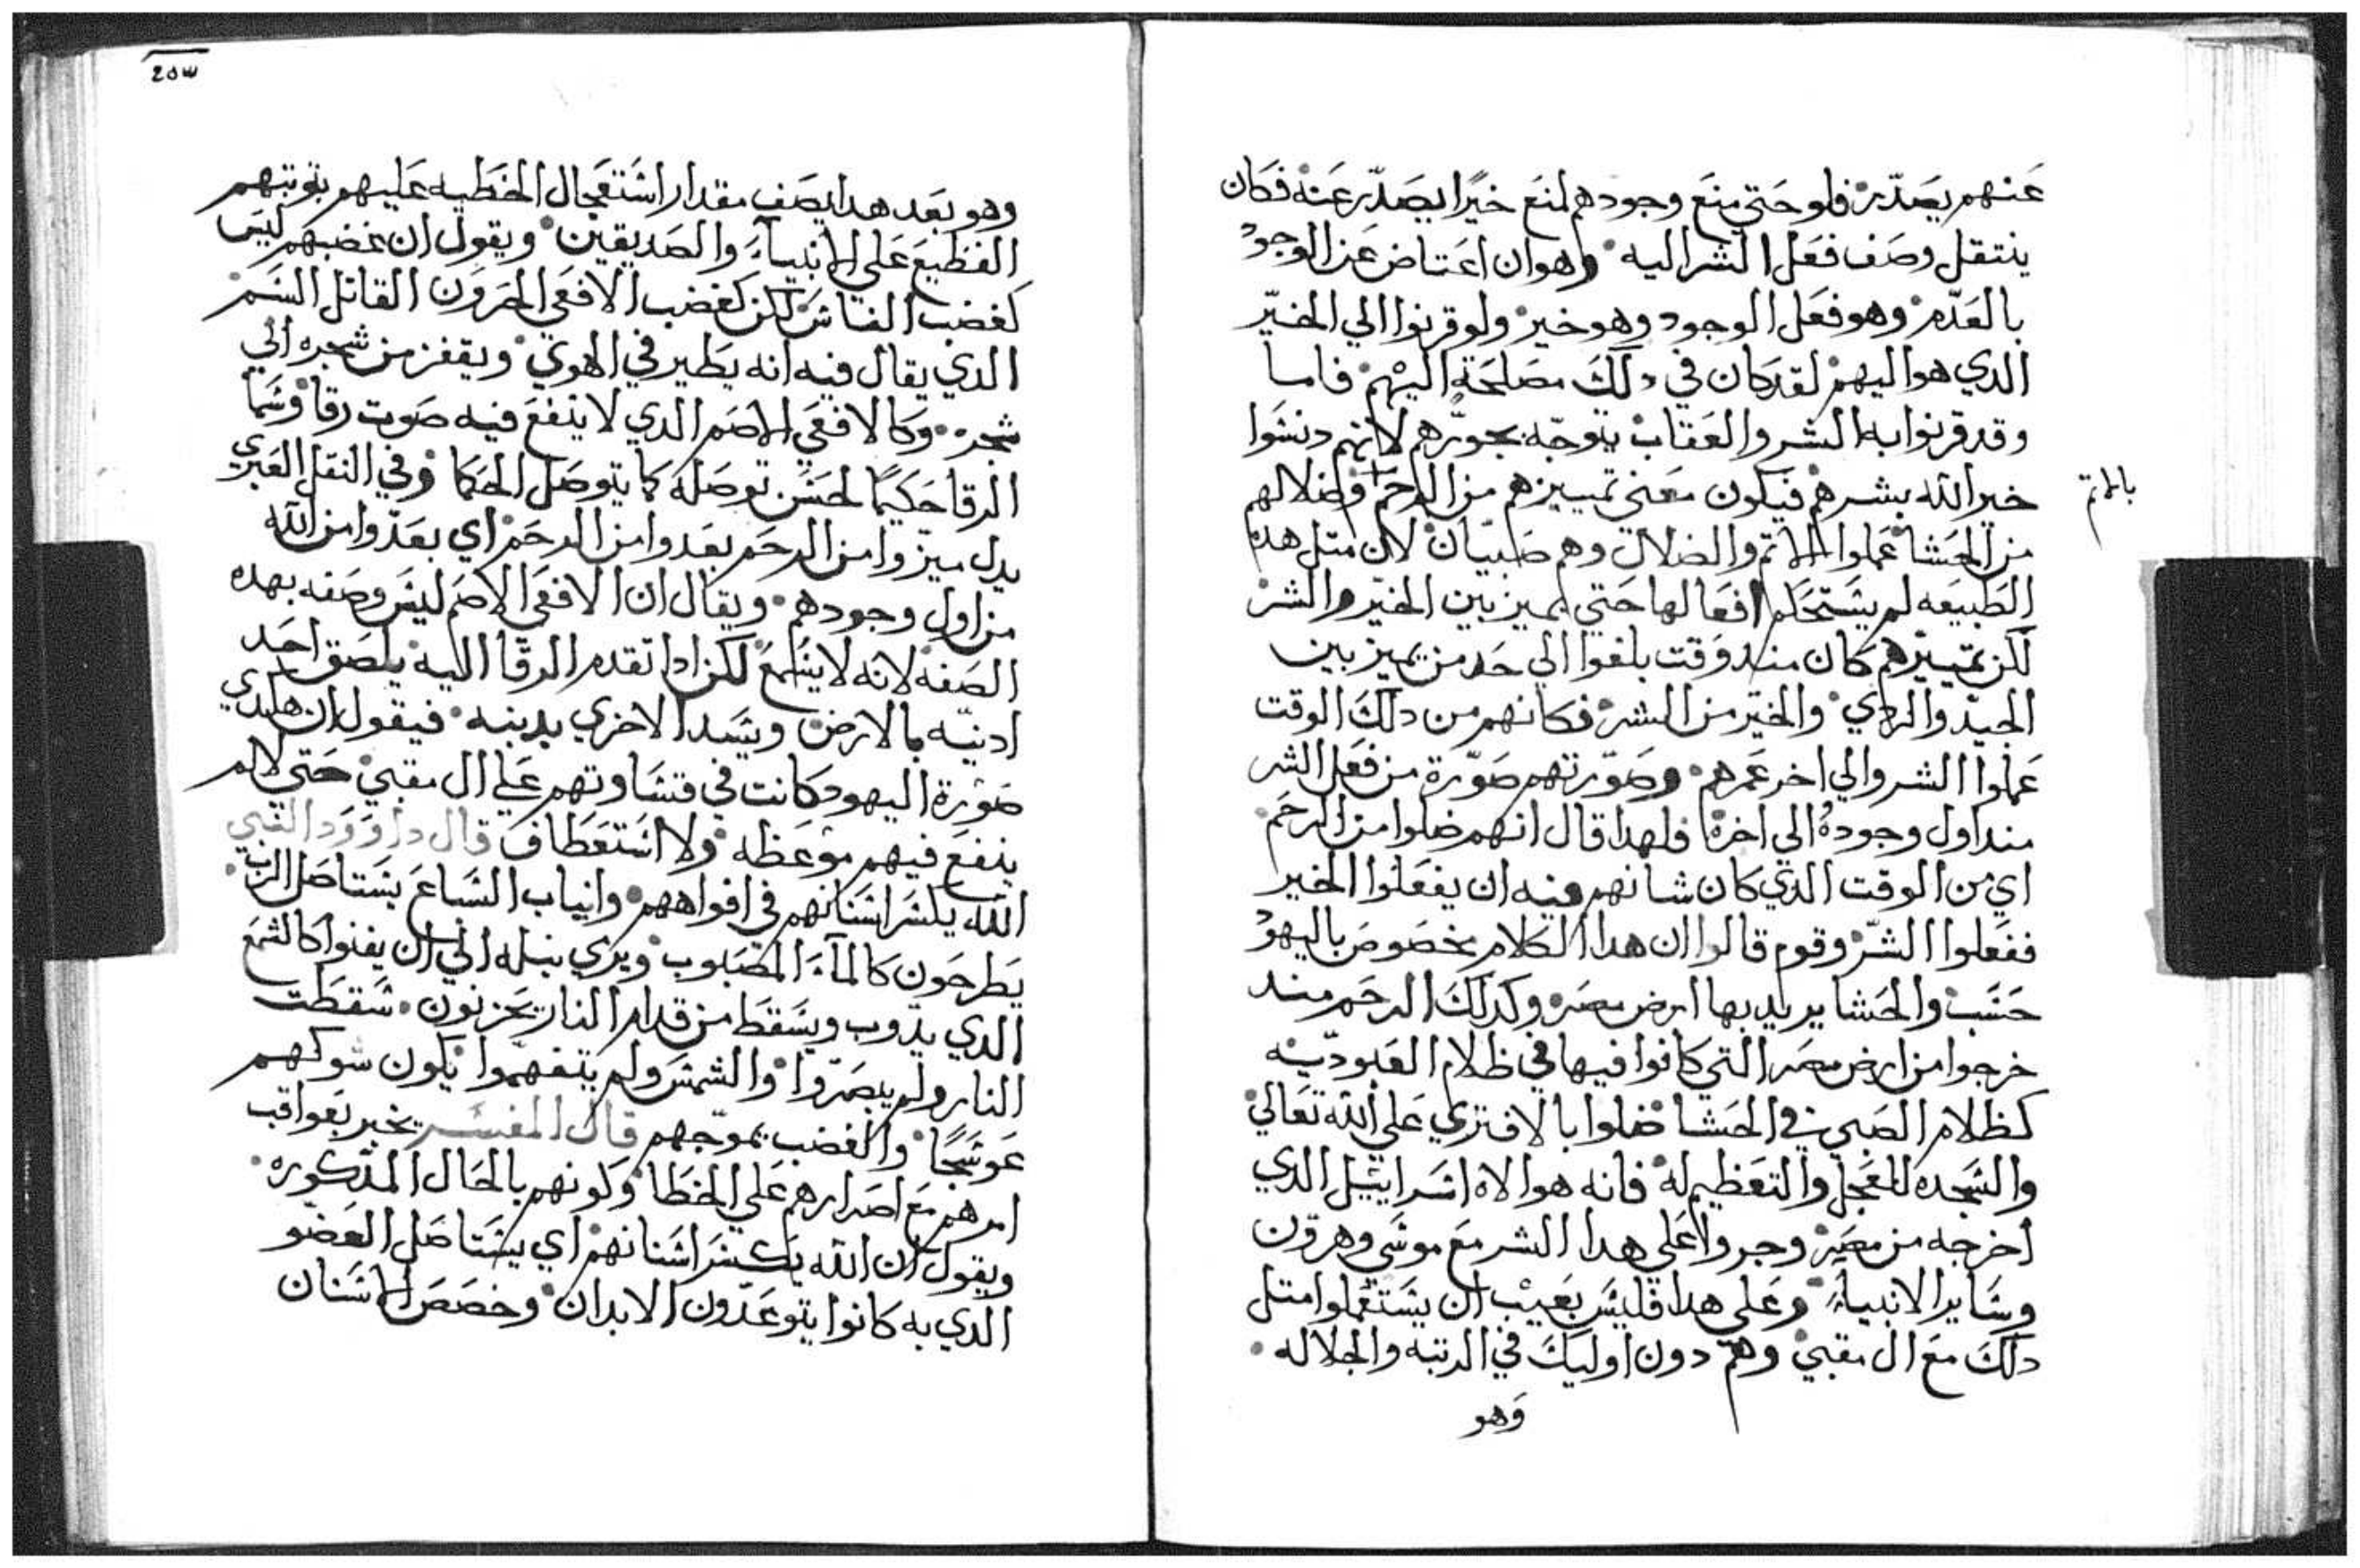 عنهم يصدر فلو حتي منع وجودهم لمنع خيرا يصدر عنه فكان
ينتقل وصف فعل الشر اليه وهو ان اعتاض عن الوجود
بالعدم وهو فعل الوجود وهو خير ولو قرنوا الي الخير
الدي هو اليهم لقد كان في دلك مصلحة اليهم فاما
وقد قرنوا به الشر والعقاب يتوجه بحورهم لانهم دنسوا
خير الله بشرهم فيكون معني تمييزهم من الرحم وضلالهم
بالاتم
من الحشا عملوا الاتم والضلال وهم صبيان لان متل هده
الطبيعه لم يستحكم افعالها حتي يميز بين الخير والشر
لكن تمييزهم كان مند وقت بلغوا الي حد من يميز بين
الجيد والردي والخير من الشر فكانهم من دلك الوقت
عملوا الشر والي اخر عمرهم وصورتهم صورة من فعل الشر
مند اول وجوده الي اخره فلهدا قال انهم ضلوا من الرحم
اي من الوقت الدي كان شانهم فيه ان يفعلوا الخير
ففعلوا الشر وقوم قالوا ان هدا الكلام مخصوص باليهود
حسب والحشا يريد بها ارض مصر وكدلك الرحم مند
خرجوا من ارض مصر التي كانوا فيها في ظلام العبوديه
كظلام الصبي في الحشا ضلوا بالافتري علي الله تعالي
والسجده للعجل والتعظيم له فانه هو الاه اسراييل الدي
اخرجه من مصر وجروا علي هدا الشر مع موسي وهرون
وساير الانبياء وعلي هدا فليس بعيب ان يستعملوا متل
دلك مع ال مقبي وهم دون اوليك في الرتبه والجلاله
وهو
٢٥٣
وهو بعد هدا يصف مقدار استعجال الخطيه عليهم بتوتبهم
الفظيع علي الانبياء والصديقين ويقول ان غضبهم ليس
كغضب الناس لكن كغضب الافعي الحرون القاتل السم
الدي يقال فيه انه يطير في الهوي ويقفز من شجره الي
شجره وكالافعي الاصم الدي لا ينفع فيه صوت رقا وسما
الرقا حكيما لحسن توصله كما يتوصل الحكما وفي النقل العبري
بدل ميزوا من الرحم بعدوا من الرحم اي بعدوا من الله
من اول وجودهم ويقال ان الافعي الاصم ليس وصفه بهده
الصفه لانه لا يسمع لكن ادا تقدم الرقا اليه يلصق احد
ادنيه بالارض ويسد الاخري بدنبه فيقول ان هكدي
صورة اليهود كانت في قساوتهم علي ال مقبي حتي لا لم
ينفع فيهم موعظه ولا استعطاف قال داوود النبي
الله يكسر اسنانهم في افواههم وانياب السباع يستاصل الرب
يطرحون كالماء المصبوب ويري نبله الي ان يفنوا كالشمع
الدي يدوب ويسقط من قدام النار يحزنون سقطت
النار ولم يبصروا والشمس ولم يتفهموا يكون شوكهم
عوسجا والغضب يموجهم قال المفسر يخبر بعواقب
امرهم مع اصرارهم علي الخطا وكونهم بالحال المدكوره
ويقول ان الله يكسر اسنانهم اي يستاصل العضو
الدي به كانوا يتوعدون الابدان وخصص الاسنان